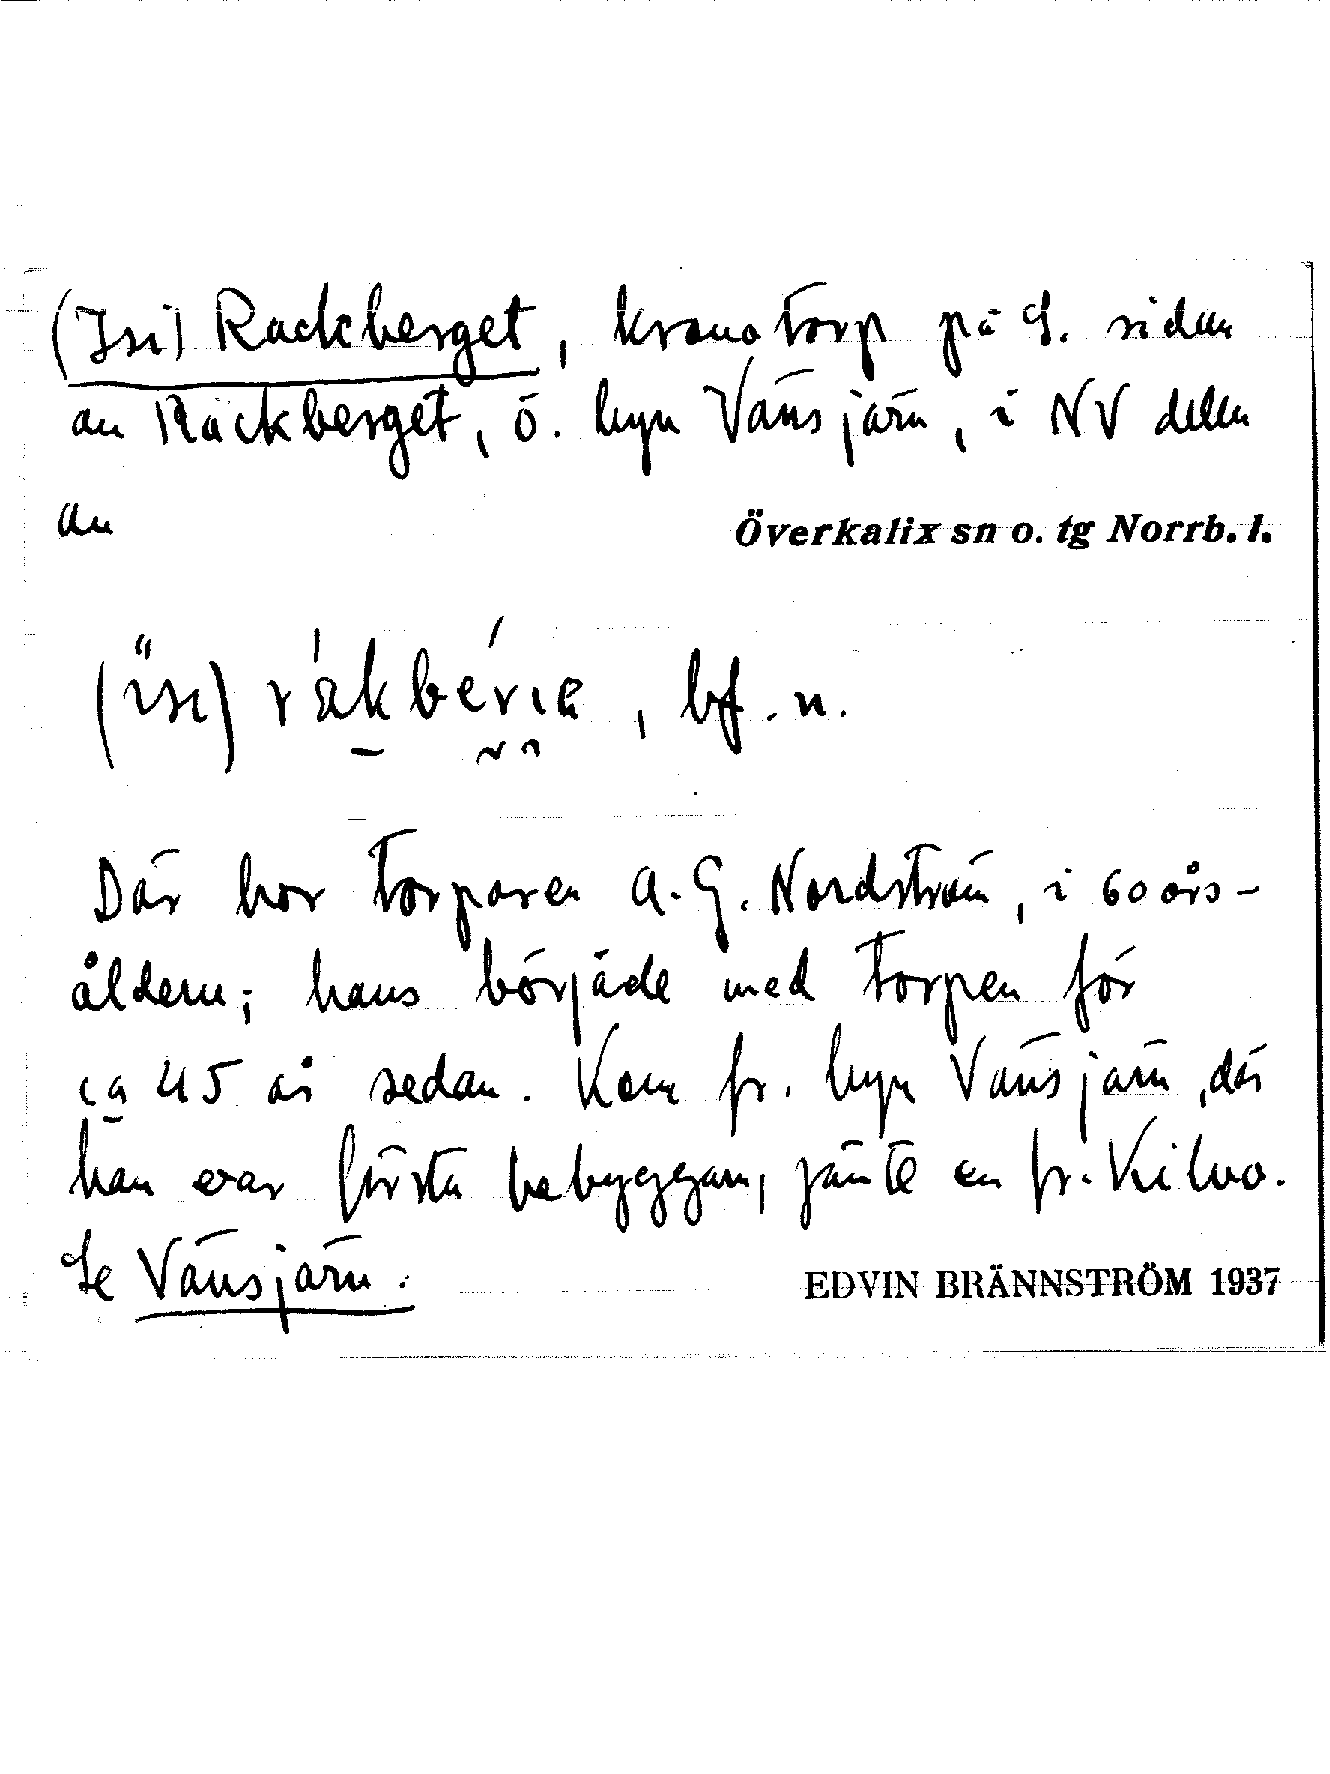 (Isi) Räckberget, kronotorp på S. sidan
av Räckberget, ö. byn Vänsjärn, i NV delen
av Överkalix sn o. tg Norrb. l.
(ïsı) rákbérıe, bf. n.
Där bor torparen A. G. Nordström, i 60 års-
åldern; hans började med torpen för
ca 45 år sedan. Kom fr. byn Vänsjärn, där
han var första bebyggaren, jämte en fr. Kilvo.
Se Vänsjärn. EDVIN BRÄNNSTRÖM 1937